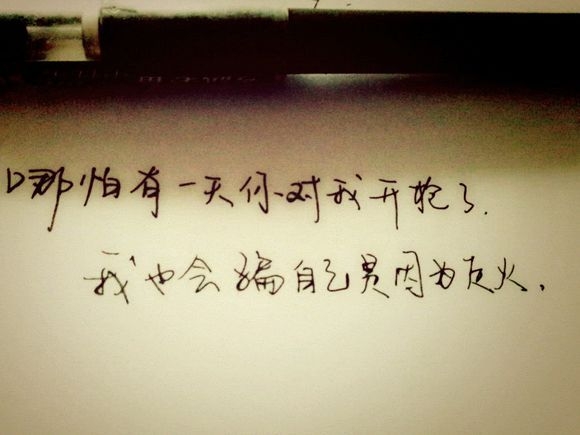 哪怕有一天你对我开枪了.
我也会骗自己是因为走火.